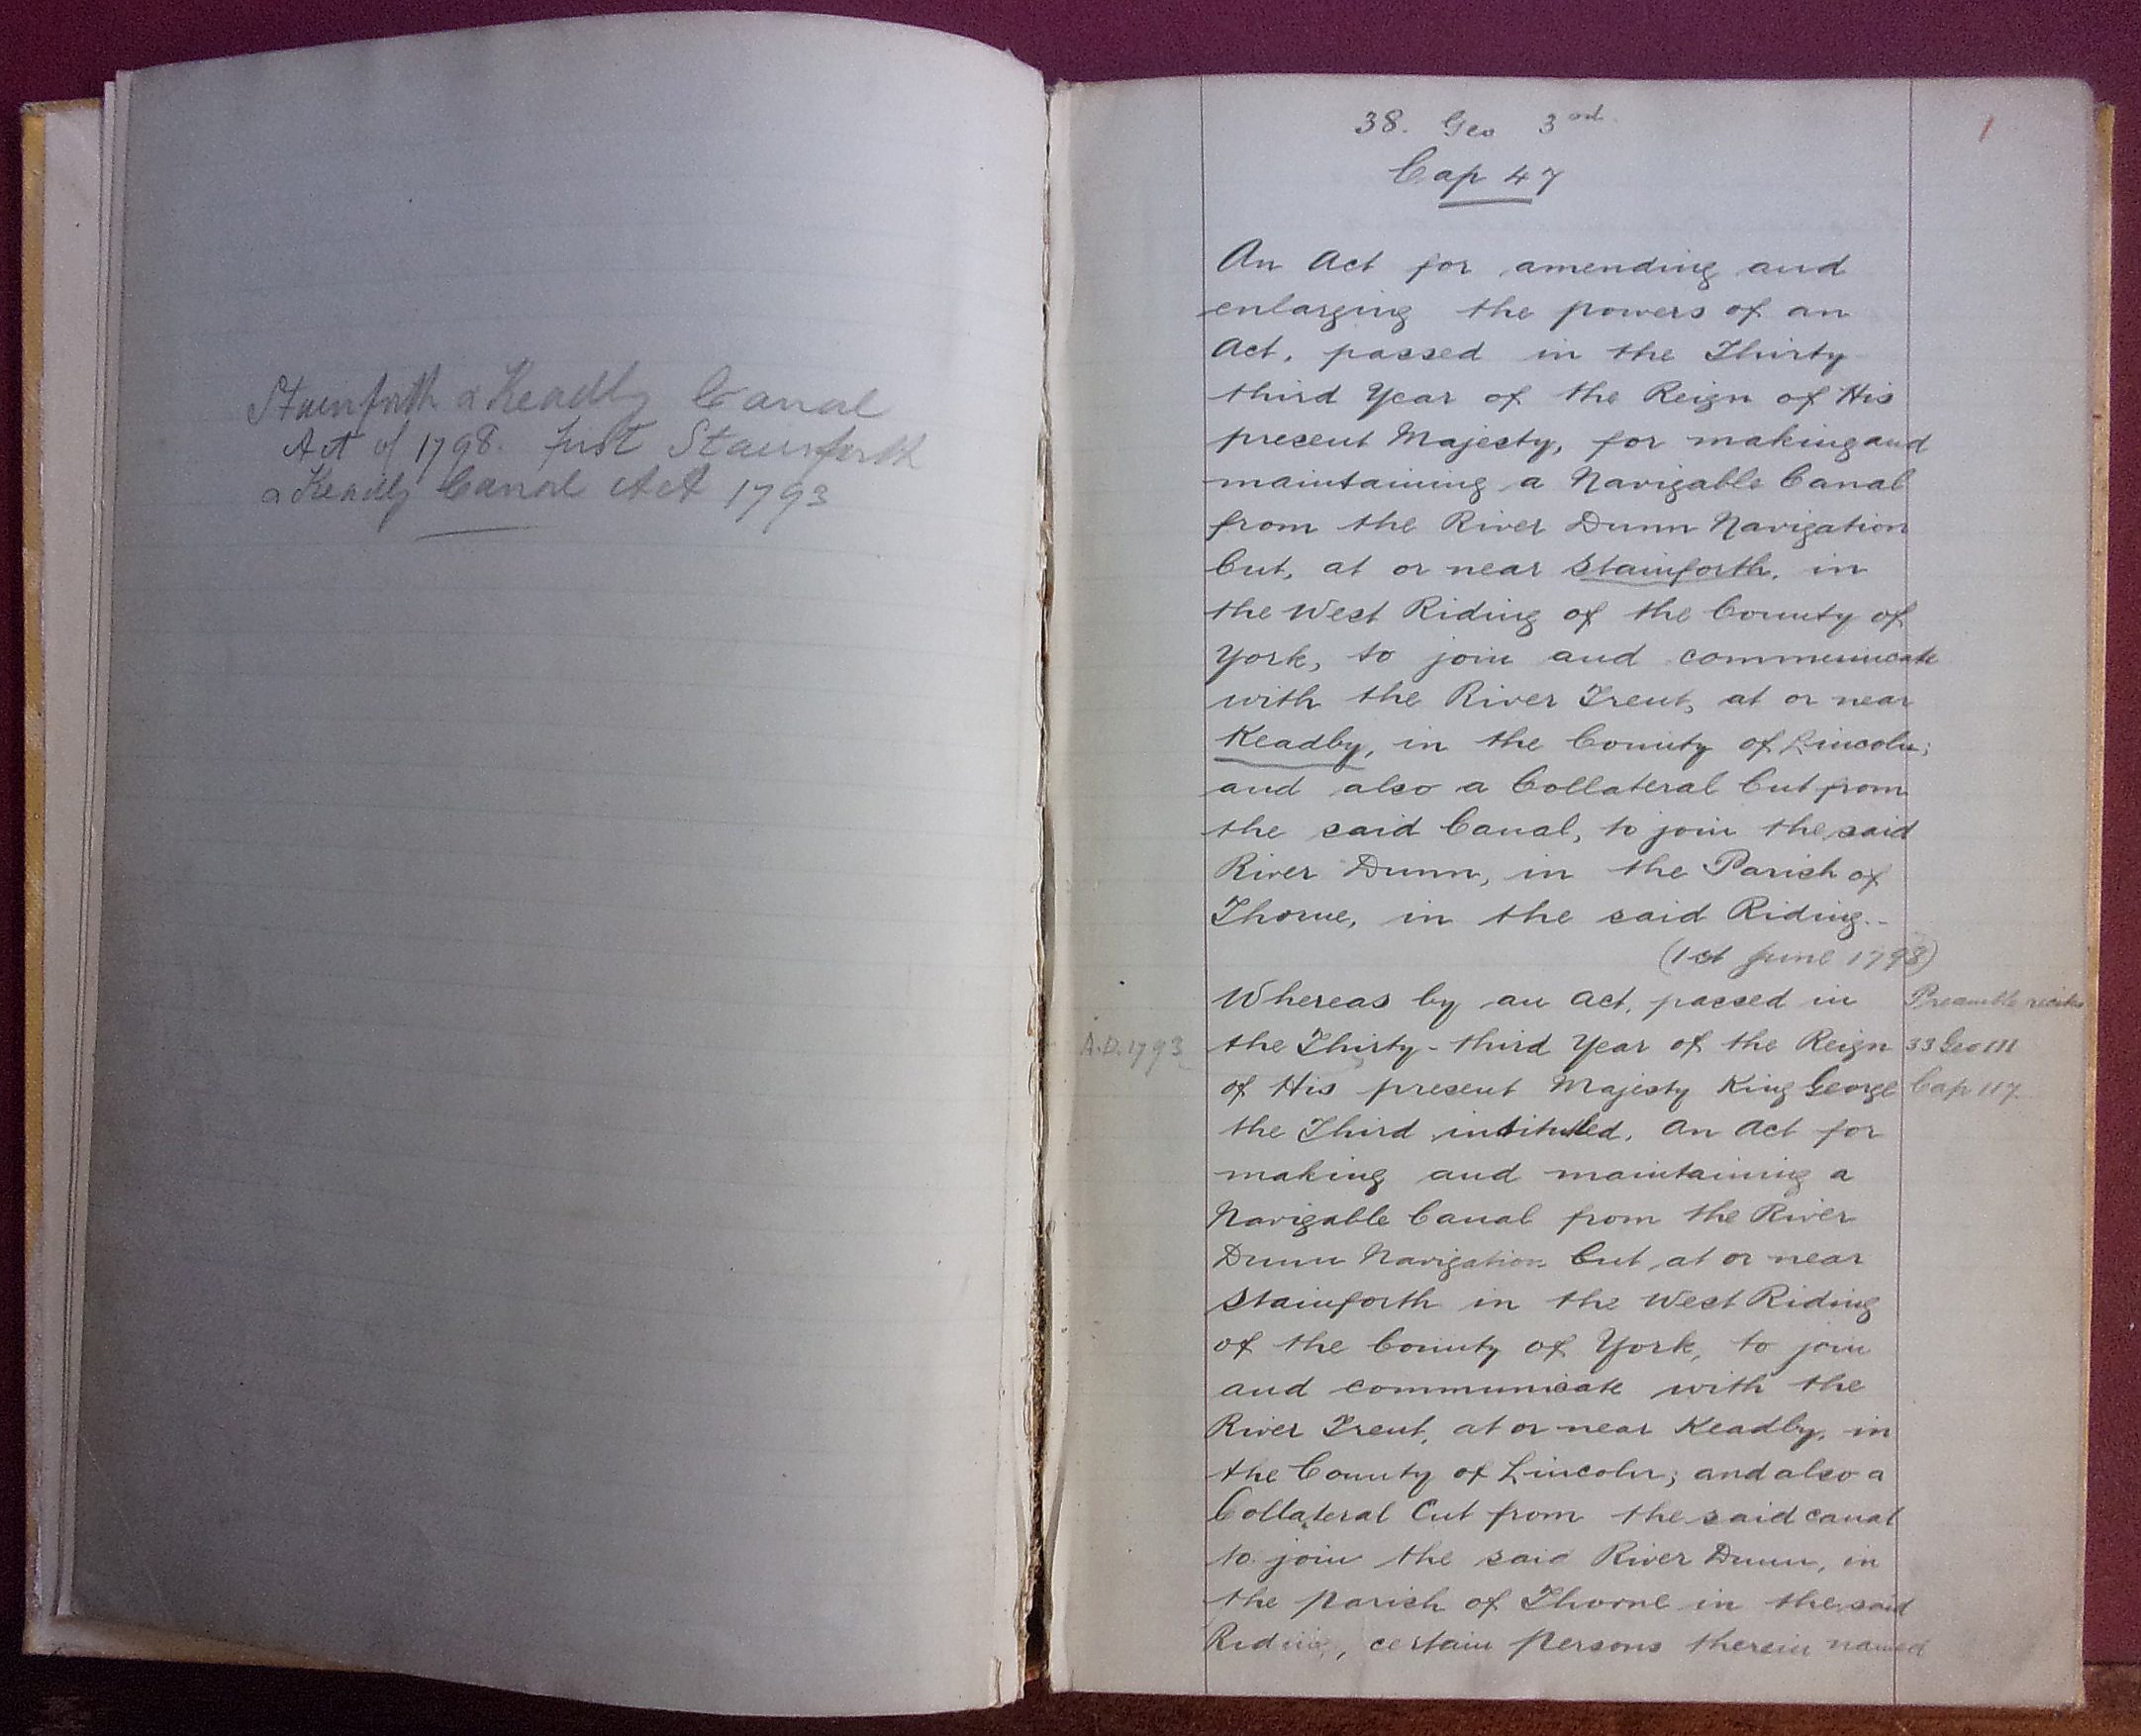 Stainforth & Keadby Canal
Act of 1798. first Stainforth
& Keadby Canal Act 1793
38. Geo 3rd
1
Cap 47
An Act for amending and
enlarging the powers of an
Act, passed in the Thirty
third Year of the Reign of His
present Majesty, for making and
maintaining a Navigable Canal
from the River Dunn Navigation
Cut, at or near Stainforth, in
the West Riding of the County of
York, to join and communicate
with the River Trent, at or near
Keadby, in the County of Lincoln;
and also a Collateral Cut from
the said Canal, to join the said
River Dunn, in the Parish of
Thorne, in the said Riding.-
(1st June 1798)
Whereas by an Act, passed in
Preamble recites
A.D. 1793
the Thirty-third Year of the Reign
33 Geo III
of His present Majesty King George
Cap 117.
the Third intituled, An Act for
making and maintaining a
Navigable Canal from the River
Dunn Navigation Cut at or near
Stainforth in the West Riding
of the County of York, to join
and communicate with the
River Trent, at or near Keadby, in
the County of Lincoln; and also a
Collateral Cut from the said canal
to join the said River Dunn, in
the Parish of Thorne in the said
Riding, certain Persons therein named